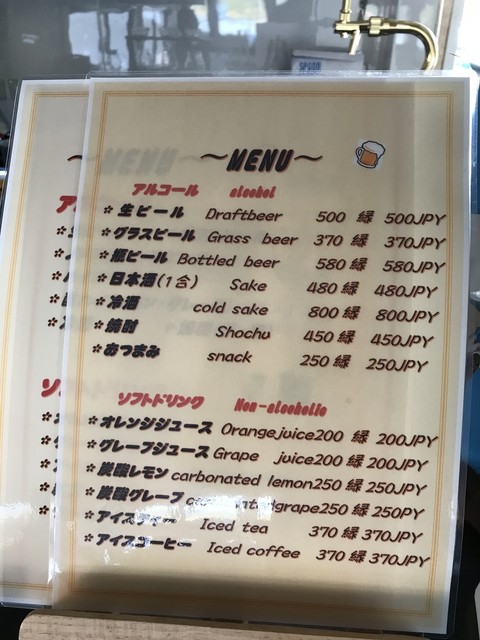 ～MENU～
アルコール alcohol
☆生ビール Draftbeer 500 縁 500JPY
☆グラスビール Grass beer 370 縁 370JPY
☆瓶ビール Bottled beer 580 縁 580JPY
☆日本酒(1合) Sake 480 縁 480JPY
☆冷酒 cold sake 800 縁 800JPY
☆焼酎 Shochu 450 縁 450JPY
☆おつまみ snack 250 縁 250JPY
ソフトドリンク Non-alcoholic
☆オレンジジュース Orangejuice200 縁 200JPY
☆グレープジュース Grape juice200 縁 200JPY
☆炭酸レモン carbonated lemon250 縁 250JPY
☆炭酸グレープ 250 縁 250PY
☆アイスティー Iced tea 370 縁 370JPY
☆アイスコーヒー Iced coffee 370 縁 370JPY